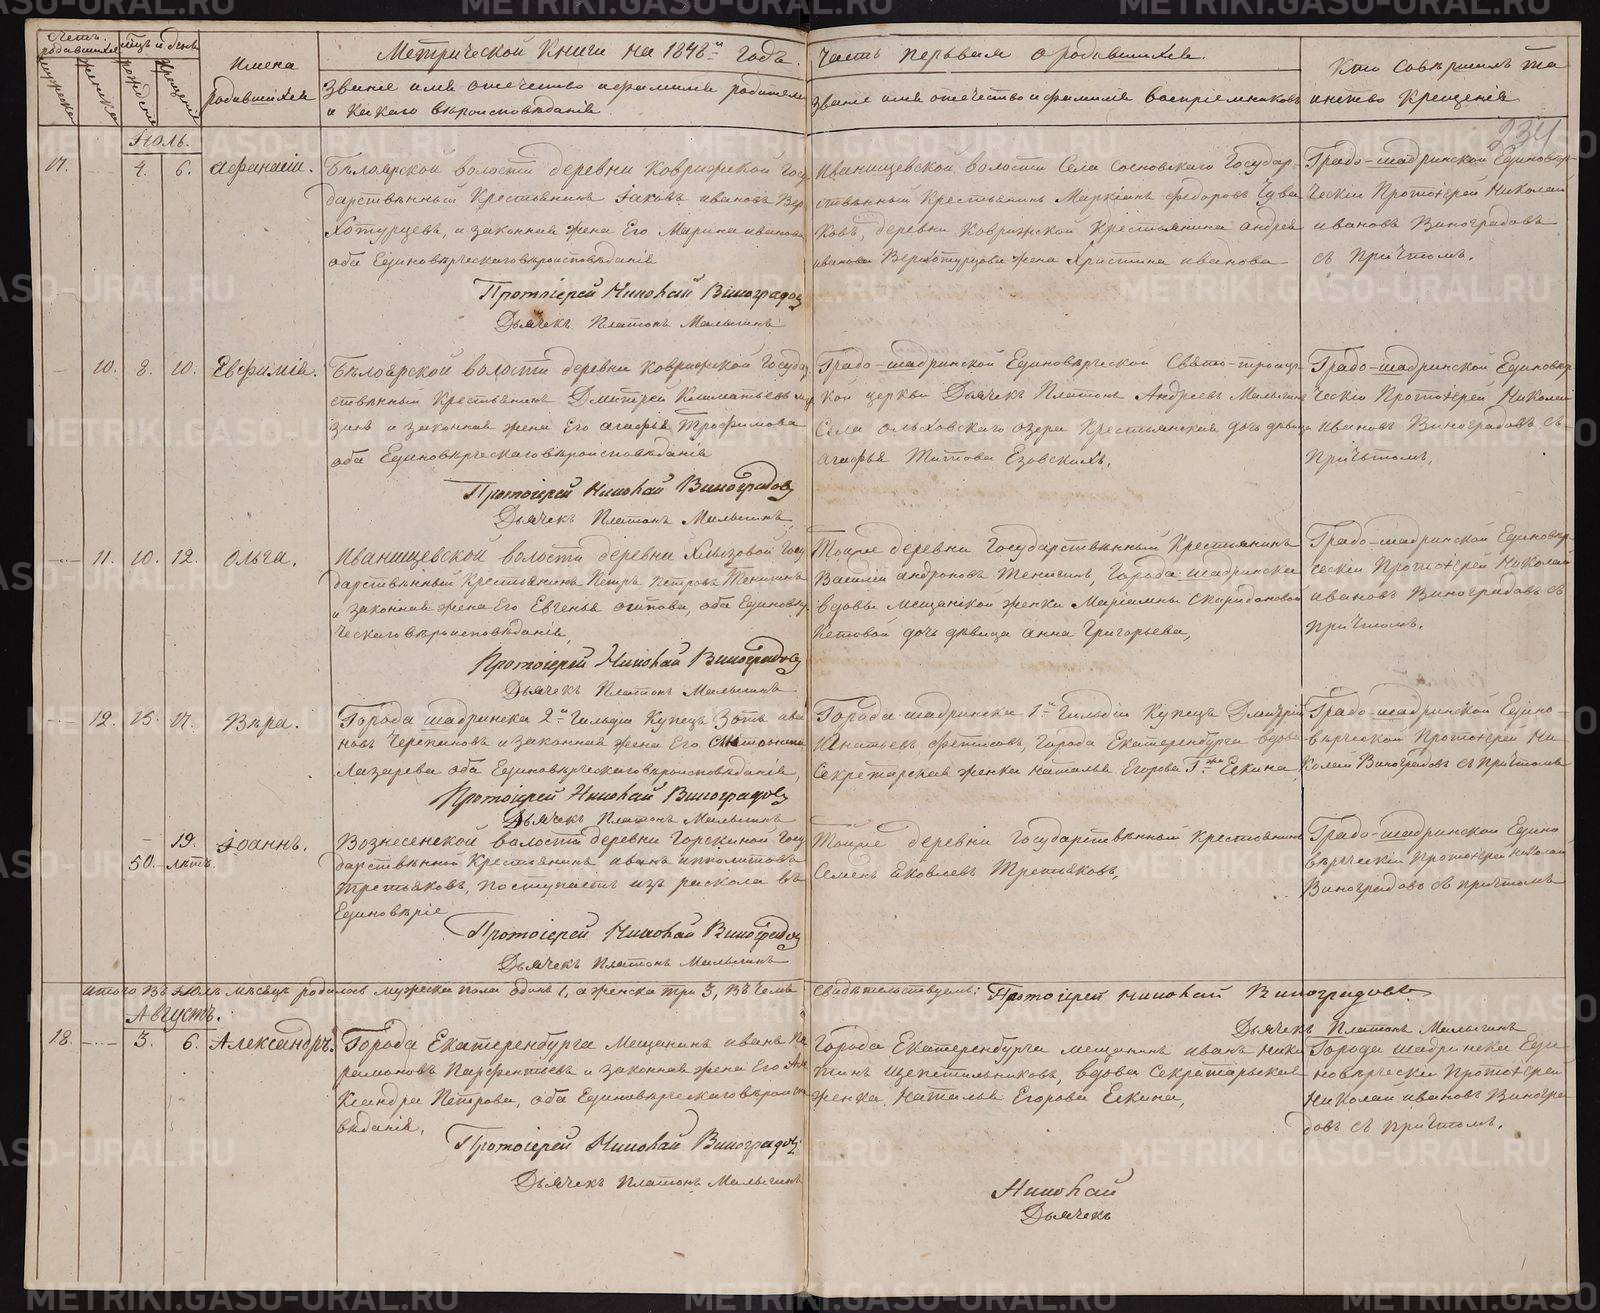 Метрической Книги на 1848-й годъ.
Часть первая о родившихся.
Счетъ родившихся
мужеска
женска
Мѣсяцъ и день
рожденія
крещенія
Имена
Родившихся
Званіе имя отечество и фамилія родителей
и какаго вѣроисповѣданія
Званіе имя отечество и фамилія воспріемниковъ
Кто совѣршилъ та
инство Крещенія
234
Іюль.
17. 4. 6. Афанасій.
Бѣлоярской волости деревни Коврижской Госу
дарственный Крестьянинъ Іаковъ Ивановъ Вер
хотурцевъ, и законная жена Его Марина Иванова
оба Единовѣрческаго вѣроисповѣданія
Протоіерей Николай Виноградовъ
Дьячекъ Платонъ Малыгинъ
Иванищевской волости Села Сосновскаго Государ-
ственный Крестьянинъ Маркіанъ Федоровъ Чува
ковъ, деревни Коврижской Крестьянина Андрея
Иванова Верхотурцова жена Христина Иванова
Градо-шадринской Единовѣр-
ческій Протоіерей Николай
Ивановъ Виноградовъ
съ Причтомъ.
10. 8. 10. Евфимія.
Бѣлоярской волости деревни Коврижской Госуда
ственный Крестьянинъ Дмитрей
и законная жена Его Агафья Трофимова
оба Единовѣрческаго вѣроисповѣданія
Протоіерей Николай Виноградовъ
Дьячекъ Платонъ Малыгинъ
Градо-шадринской Единовѣрческой Свято-троиц
кой церкви Дьячекъ Платонъ Андреевъ Малыгинъ
Села Ольховскаго озера Крестьянская дочь дѣвица
Агафья Титова Езовскихъ,
Градо-шадринской Единовѣр
ческій Протоіерей Николай
Ивановъ Виноградовъ съ
Причьтомъ,
11. 10. 12. Ольга.
Иванищевской волости деревни Хлызовой Госу
дарственный Крестьянинъ Петръ Петровъ Теничинъ
и законная жена Его Евгенья Осипова, оба Единовѣр
ческаго вѣроисповѣданія,
Протоіерей Николай Виноградовъ
Дьячекъ Платонъ Малыгинъ
Тойже деревни Государственный Крестьянинъ
Васілій Андроновъ Теничинъ, города шадринска
вдовы мещанской женки Маріамны Спиридоновой
Кетовой дочь дѣвица Анна Григорьева,
Градо-шадринской Единовѣр
ческій Протоіерей Николай
Ивановъ Виноградовъ съ
Причтомъ.
12. 15. 17. Вѣра.
Города шадринска 2-й Гильдіи Купецъ Зотъ Ива
новъ Черепановъ и законная жена Его
Лазарева оба Единовѣрческаго вѣроисповѣданія,
Протоіерей Николай Виноградовъ
Дьячекъ Платонъ Малыгинъ
Города шадринска 1-й Гильдіи Купецъ Дмитрій
Игнатьевъ Фетисовъ, города Екатеренбурга вдова
Секретарская женка Наталья Егорова Г-жа Ёлкина
Градо-шадринской Едино-
вѣрческой Протоіерей Ни
колай Виноградовъ съ Причтомъ
19. Іоаннъ.
50.-лѣтъ.
Вознесенской волости деревни Горскиной Госу
дарственный Крестьянинъ Иванъ Ипполитовъ
Третьяковъ, поступаетъ изъ раскола въ
Единовѣріе
Протоіерей Николай Виноградовъ
Дьячекъ Платонъ Малыгинъ
Тойже деревни Государственный Крестьянинъ
Семенъ Яковлевъ Третьяковъ,
Градо-шадринской Едино
вѣрческій Протоіерей Николай
Виноградовъ съ причтомъ
Итого въ Іюлѣ мѣсяцѣ родилось мужеска пола одинъ 1, а женска три 3, въ чемъ
свидѣтельствуемъ: Протоіерей Николай Виноградовъ.
Дьячекъ Платонъ Малыгинъ
Августъ.
18. 3. 6. Александръ.
Города Екатеренбурга Мещанинъ Иванъ Па
рамоновъ Парфентьевъ и законная жена Его Але
ксандра Петрова, оба Единовѣрческаго вѣроиспо
вѣданія,
Протоіерей Николай Виноградовъ
Дьячекъ Платонъ Малыгинъ
Города Екатеренбурга мещанинъ Иванъ Ники
тинъ Щепетильниковъ, вдова Секретарьская
женка Наталья Егорова Ёлкина,
Города шадринска Еди
новѣрчески Протоіерей
Николай Ивановъ Виногра
довъ съ причтомъ.
Николай
Дьячекъ
METRIKI.GASO-URAL.RU